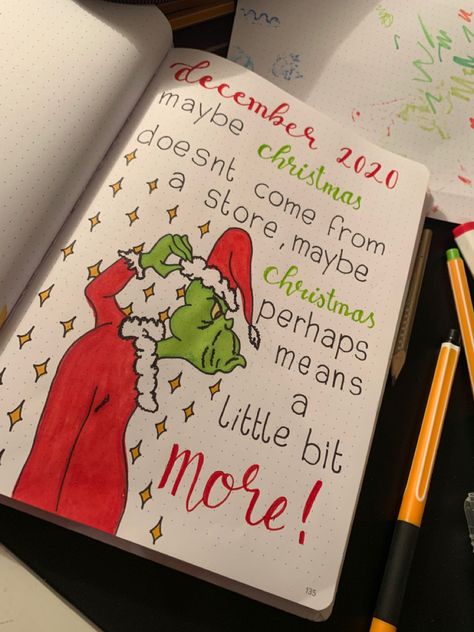 december 2020
maybe christmas
doesnt come from
a store, maybe
christmas
perhaps
means
a
little bit
more!
135